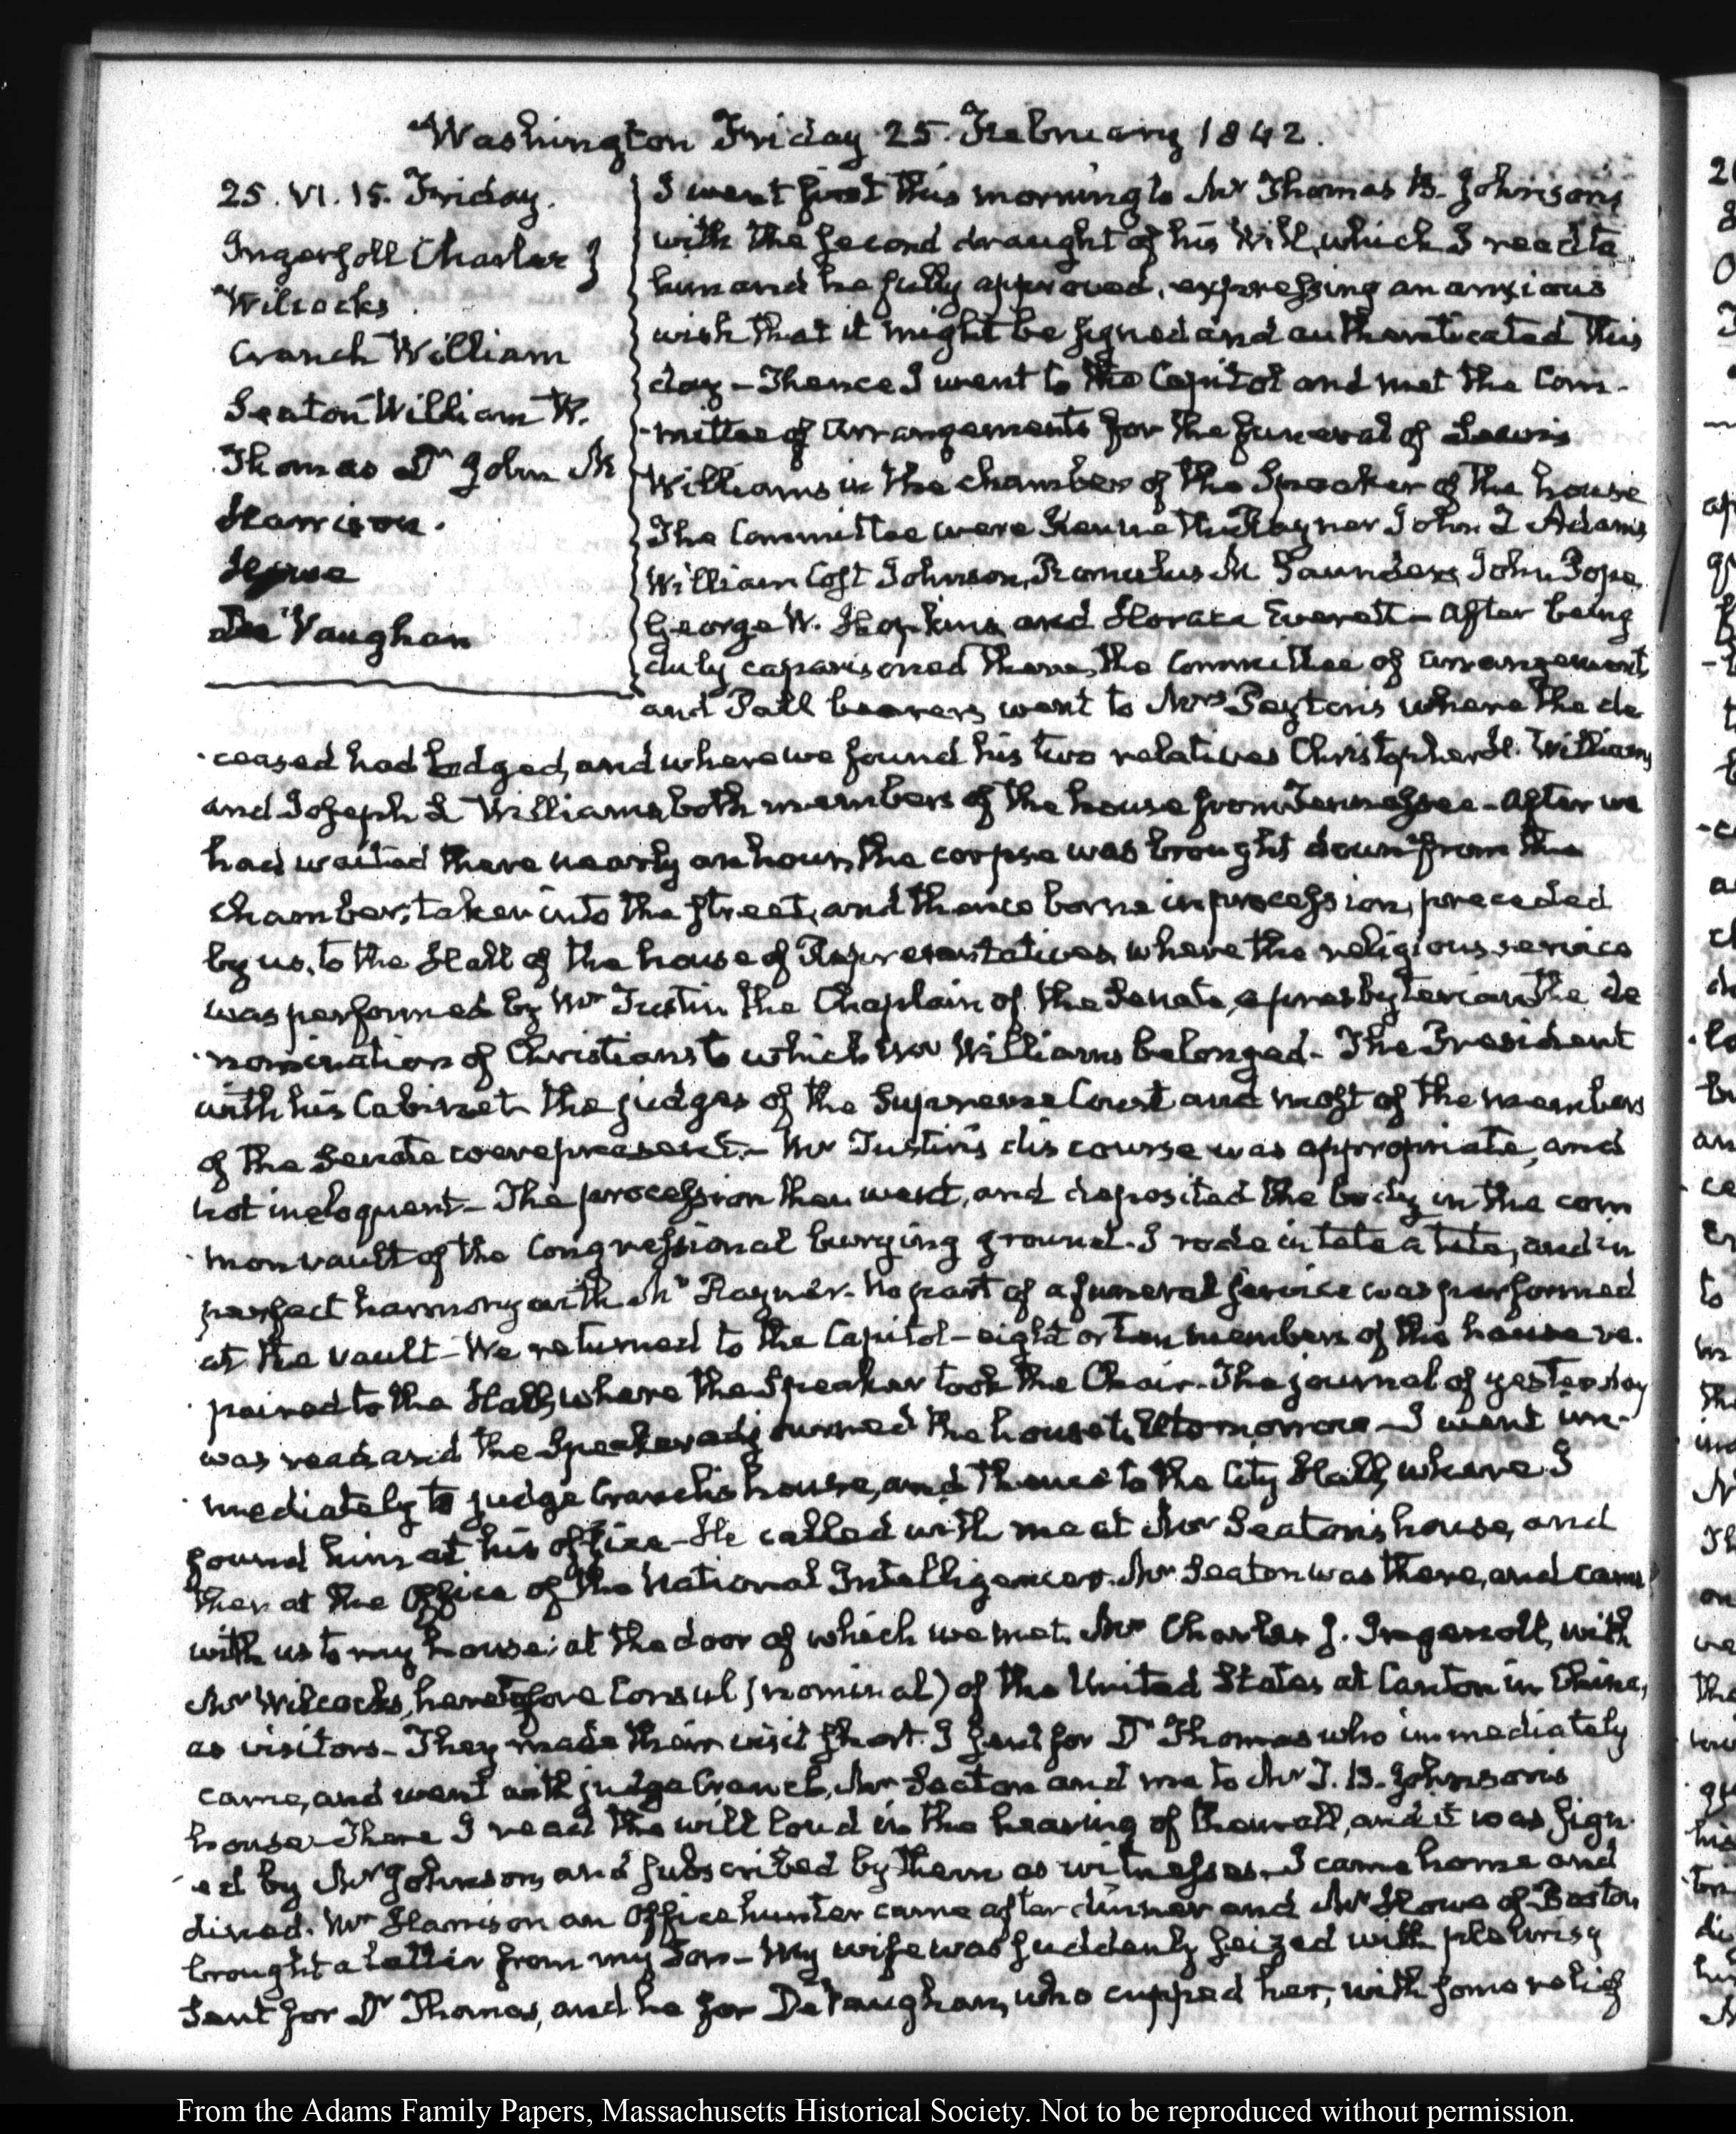 Washington Friday 25. February 1842.
25. VI. 15. Friday.
Ingersoll Charles J
Wilcocks
Cranch William
Seaton William W.
Thomas Dr John M
Harrison.
De Vaughan
I went first this morning to Mr Thomas B. Johnson's
with the second draught of his Will, which I read to
him and he fully approved, expressing an anxious
wish that it might be signed and authenticated this
day - Thence I went to the Capitol and met the Com-
-mittee of Arrangements for the funeral of Lewis
Williams in the chamber of the Speaker of the house
The Committee were Kenneth Rayner John Q Adams
William Cost Johnson, Romulus M Saunders, John Pope,
George W. Hopkins and Horace Everett - After being
duly caparisoned there, the Committee of arrangements,
and Pall bearers, went to Mrs Peyton's where the de
-ceased had lodged, and where we found his two relatives Christopher H. Williams
and Joseph L Williams, both members of the house from Tennessee - After we
had waited there nearly an hour, the corpse was brought down from the
chamber, taken into the street, and thence borne in procession, preceded
by us, to the Hall of the house of Representatives, where the religious service
was performed by Mr Tustin the Chaplain of the Senate, a presbyterian, the de
-nomination of Christians to which Mr Williams belonged - The President
with his Cabinet, the judges of the Supreme Court and most of the members
of the Senate were present. - Mr Tustin's discourse was appropriate, and
not ineloquent - The procession then went, and deposited the body in the com
-mon vault of the Congressional burying ground. I rode in tete a tete, and in
perfect harmony with Mr Rayner. No part of a funeral service was performed
at the vault - We returned to the Capitol - eight or ten members of the house re-
-paired to the Hall, where the Speaker took the Chair. The journal of yesterday
was read, and the Speaker adjourned the house till tomorrow - I went im-
-mediately to judge Cranch's house, and thence to the City Hall, where I
found him at his office - He called with me at Mr Seaton's house, and
then at the Office of the National Intelligencer. Mr Seaton was there, and came
with us to my house; at the door of which we met Mr Charles J. Ingersoll, with
Mr Wilcocks, heretofore Consul (nominal) of the United States at Canton in China,
as visitors - They made their visit short. I sent for Dr Thomas who immediately
came, and went with judge Cranch, Mr Seaton and me to Mr T. B. Johnson's
house - There I read the will loud in the hearing of them all, and it was sign
-ed by Mr Johnson, and subscribed by them as witnesses - I came home and
dined. Mr Harrison an Office hunter came after dinner and Mr Howe of Boston,
brought a letter from my Son - My wife was suddenly seized with pleurisy
Sent for Dr Thomas, and he for De Vaughan, who cupped her, with some relief
From the Adams Family Papers, Massachusetts Historical Society. Not to be reproduced without permission.